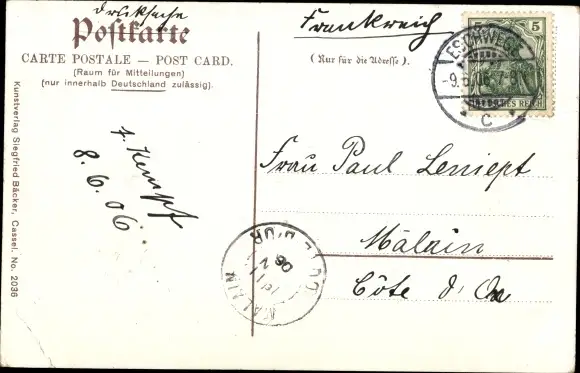 Drucksache
Postkarte
CARTE POSTALE — POST CARD.
(Raum für Mitteilungen)
(nur innerhalb Deutschland zulässig).
Frankreich
(Nur für die Adresse).
5 5
ESCHWEGE
-9.6.06. 7-8
C
HES REICH
Kunstverlag Siegfried Bäcker, Cassel. No. 2036
Kempf
8.6.06.
Frau Paul
Mâlain
Côte d'Or
CÔTE D'OR
MALAIN
06